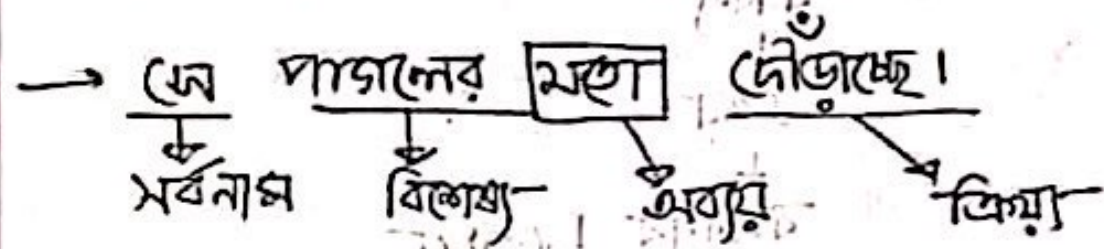 → সে পাগলের মতো দৌঁড়াচ্ছে।
সর্বনাম বিশেষ্য অব্যয় ক্রিয়া